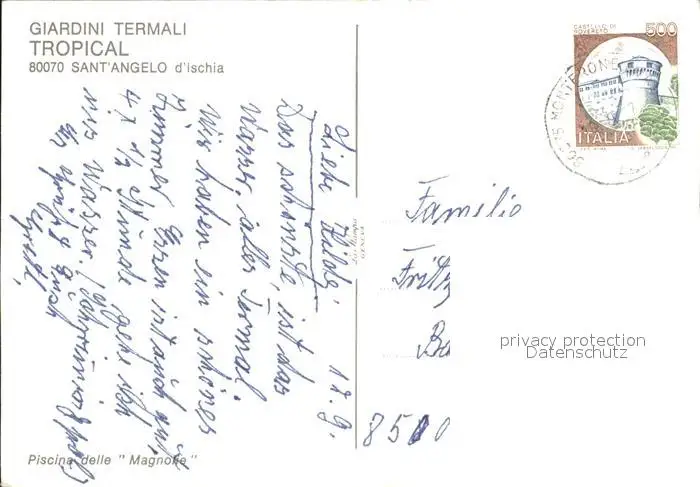 GIARDINI TERMALI
TROPICAL
80070 SANT'ANGELO d'ischia
CASTELLO DI
ROVERETO
500
MONTERONE
ITALIA
Liebe Hilde,
17.9.
Das schönste, ist das
Wasser, alles Termal.
Wir haben ein schönes
Zimmer Essen ist auch gut,
4 x 1/2 Stunde gehe ich
ins Wasser.
Es grüßt Euch
Gretl
Familie
Fritz
Ba
8510
privacy protection
Datenschutz
Piscina delle " Magnolie "